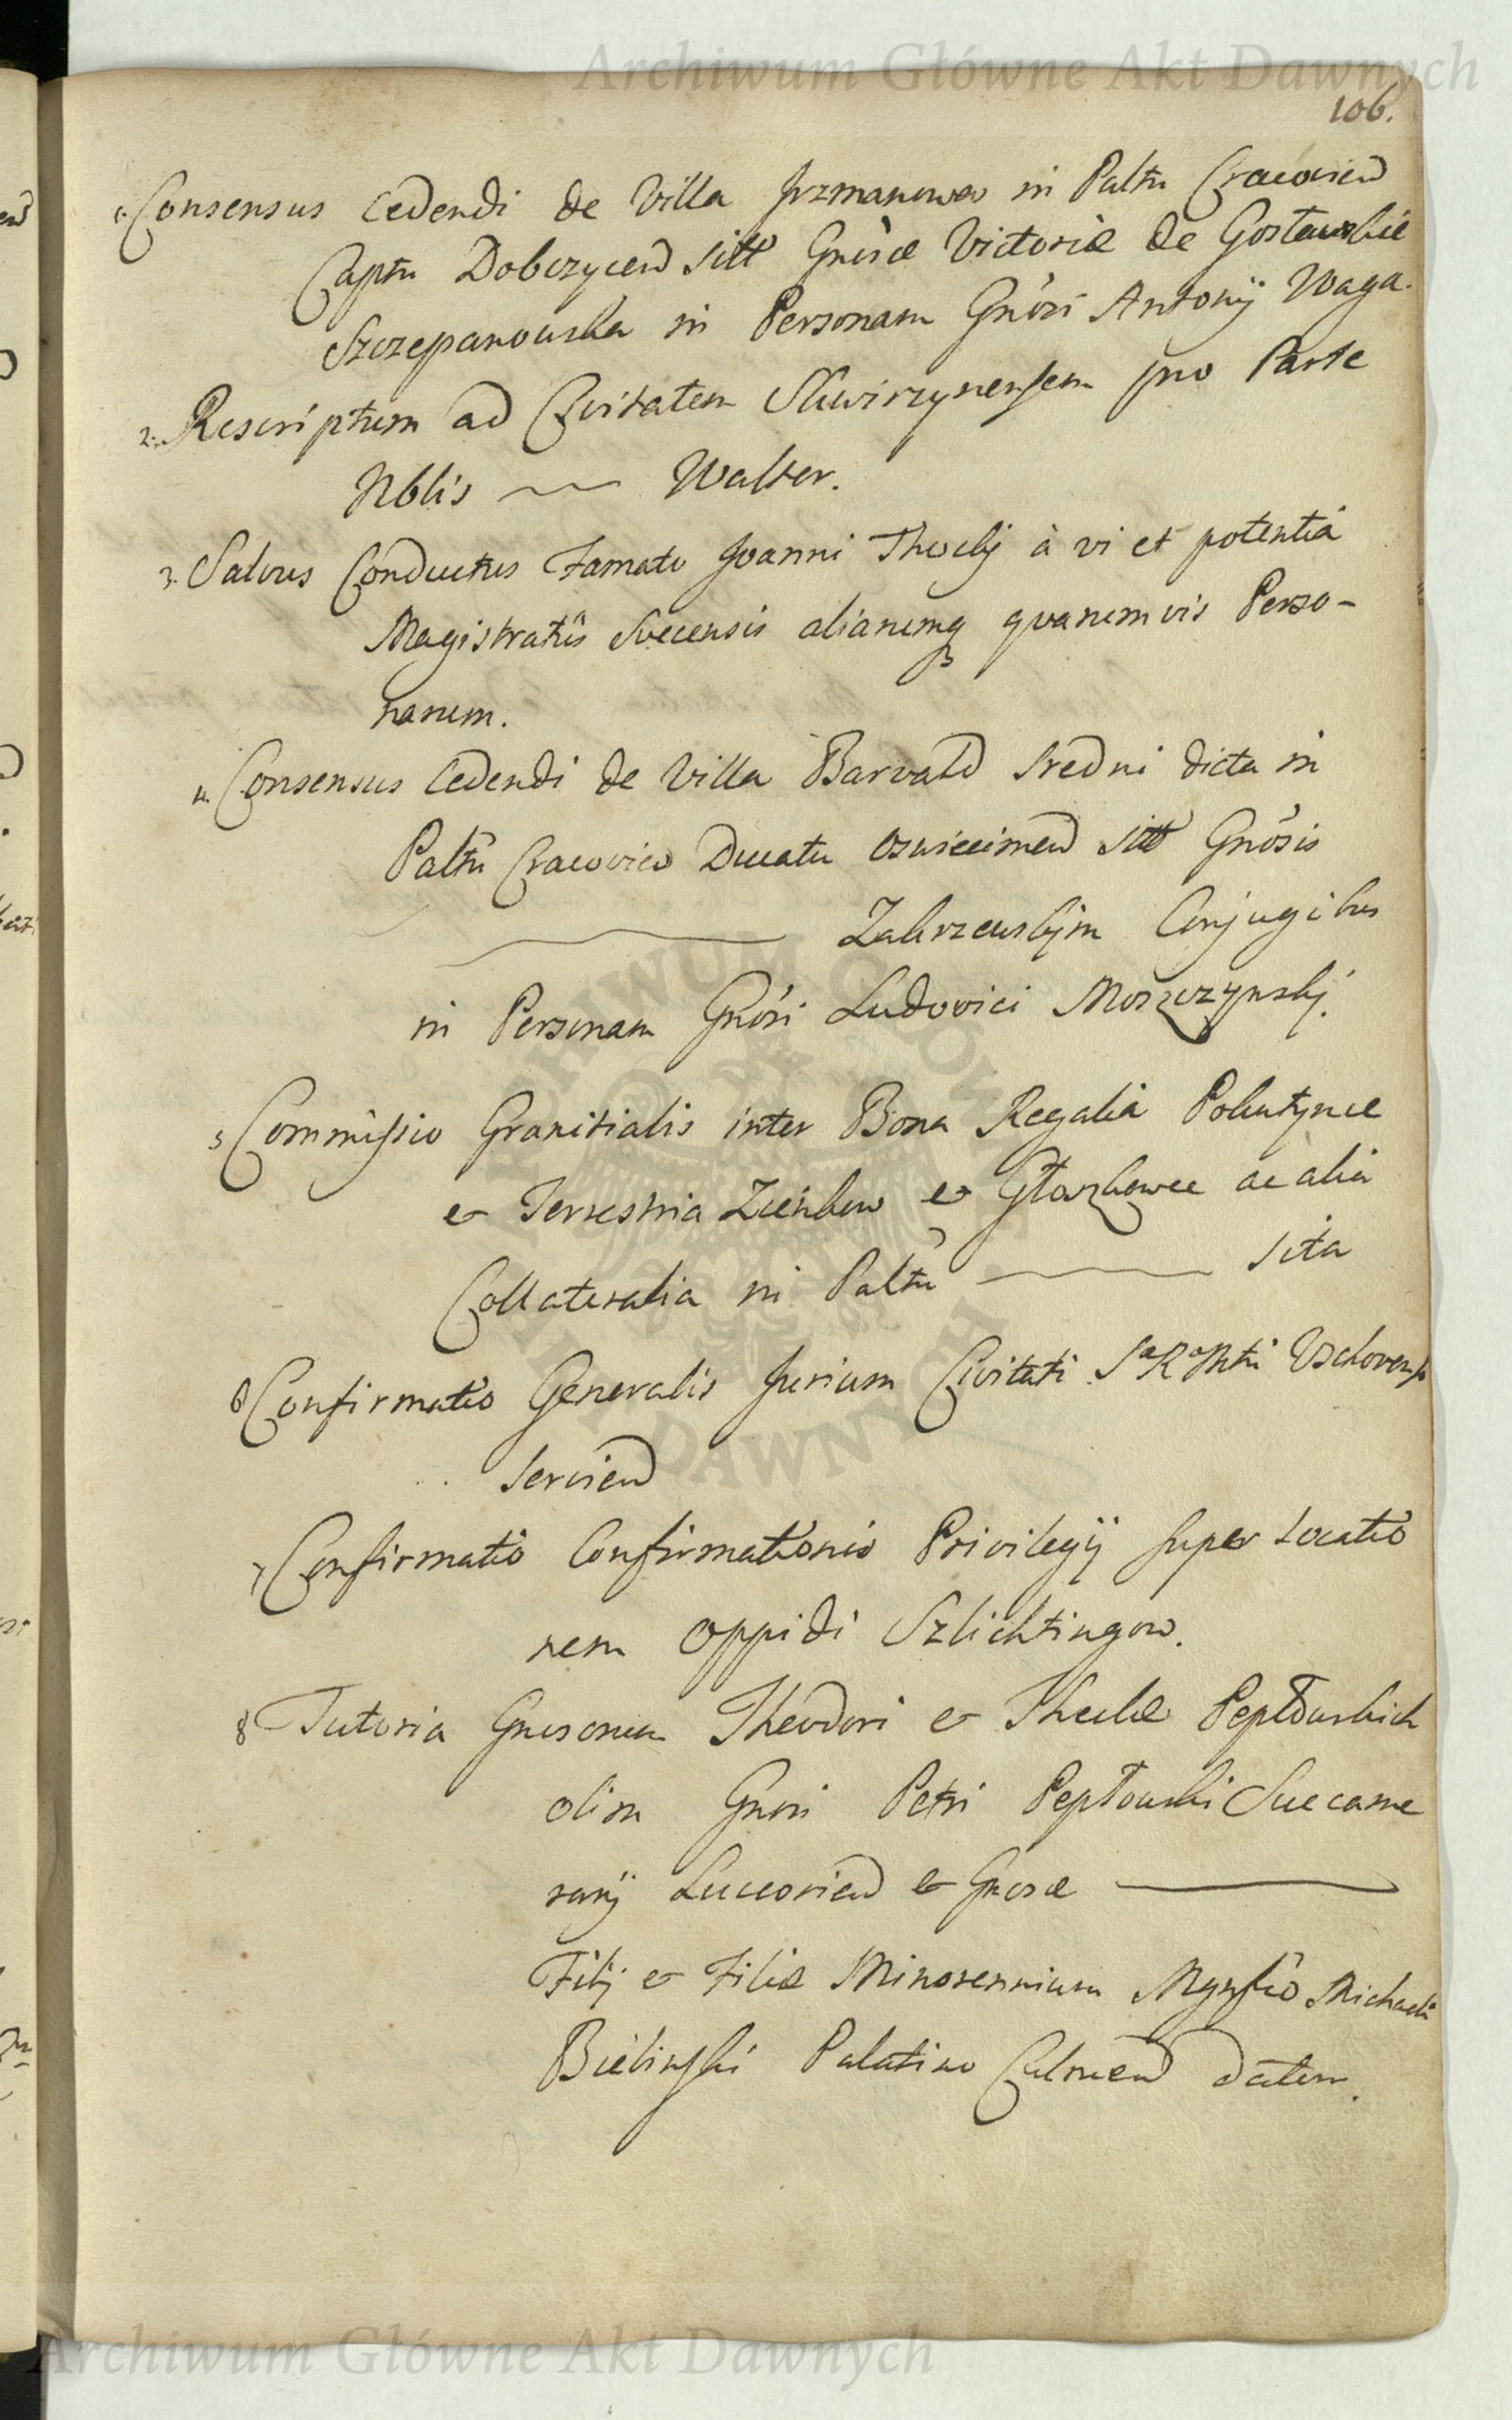 Archiwum Główne Akt Dawnych
106.
1. Consensus cedendi de Villa Jrzmanowa in Paltu Cracovien
Captu Dobczycen sitt Gnosae Victoriae de Gostawskie
Szczepanowska in Personam Gnosi Antonij Waga.
2. Rescriptum ad Civitatem Skwirzynensem pro Parte
Nblis Walter.
3. Salvus Conductus Famato Joanni à vi et potentiâ
Magistratûs Svecensis aliarumq quarumvis Perso-
narum.
4. Consensus cedendi de Villa Barvald Sredni dicta in
Paltu Cracovien Ducatu Oswiecimen sitt Gnosis
Zakrzewskim Conjugibus
in Personam Gnosi Ludovici Moszczynskj.
5 Commissio Granitialis inter Bona Regalia Polutynce
et Terrestria et ac alia
Collateralia in Paltu sita
6 Confirmatio Generalis Jurium Civitati Sae Rae Mtti Vschovensi
servien
7 Confirmatio Confirmationis Privilegij super Locatio
nem oppidi Szlichtingow.
8 Tutoria Gnosorum Theodori et Theclae Pepłowskich
olim Gnosi Petri Pepłowski Succame
rarij Luceorien et Gnosae
Filij et Filiae Minorennium Mgnfco Michaeli
Bielinski Palatino Culmen datum.
Archiwum Główne Akt Dawnych